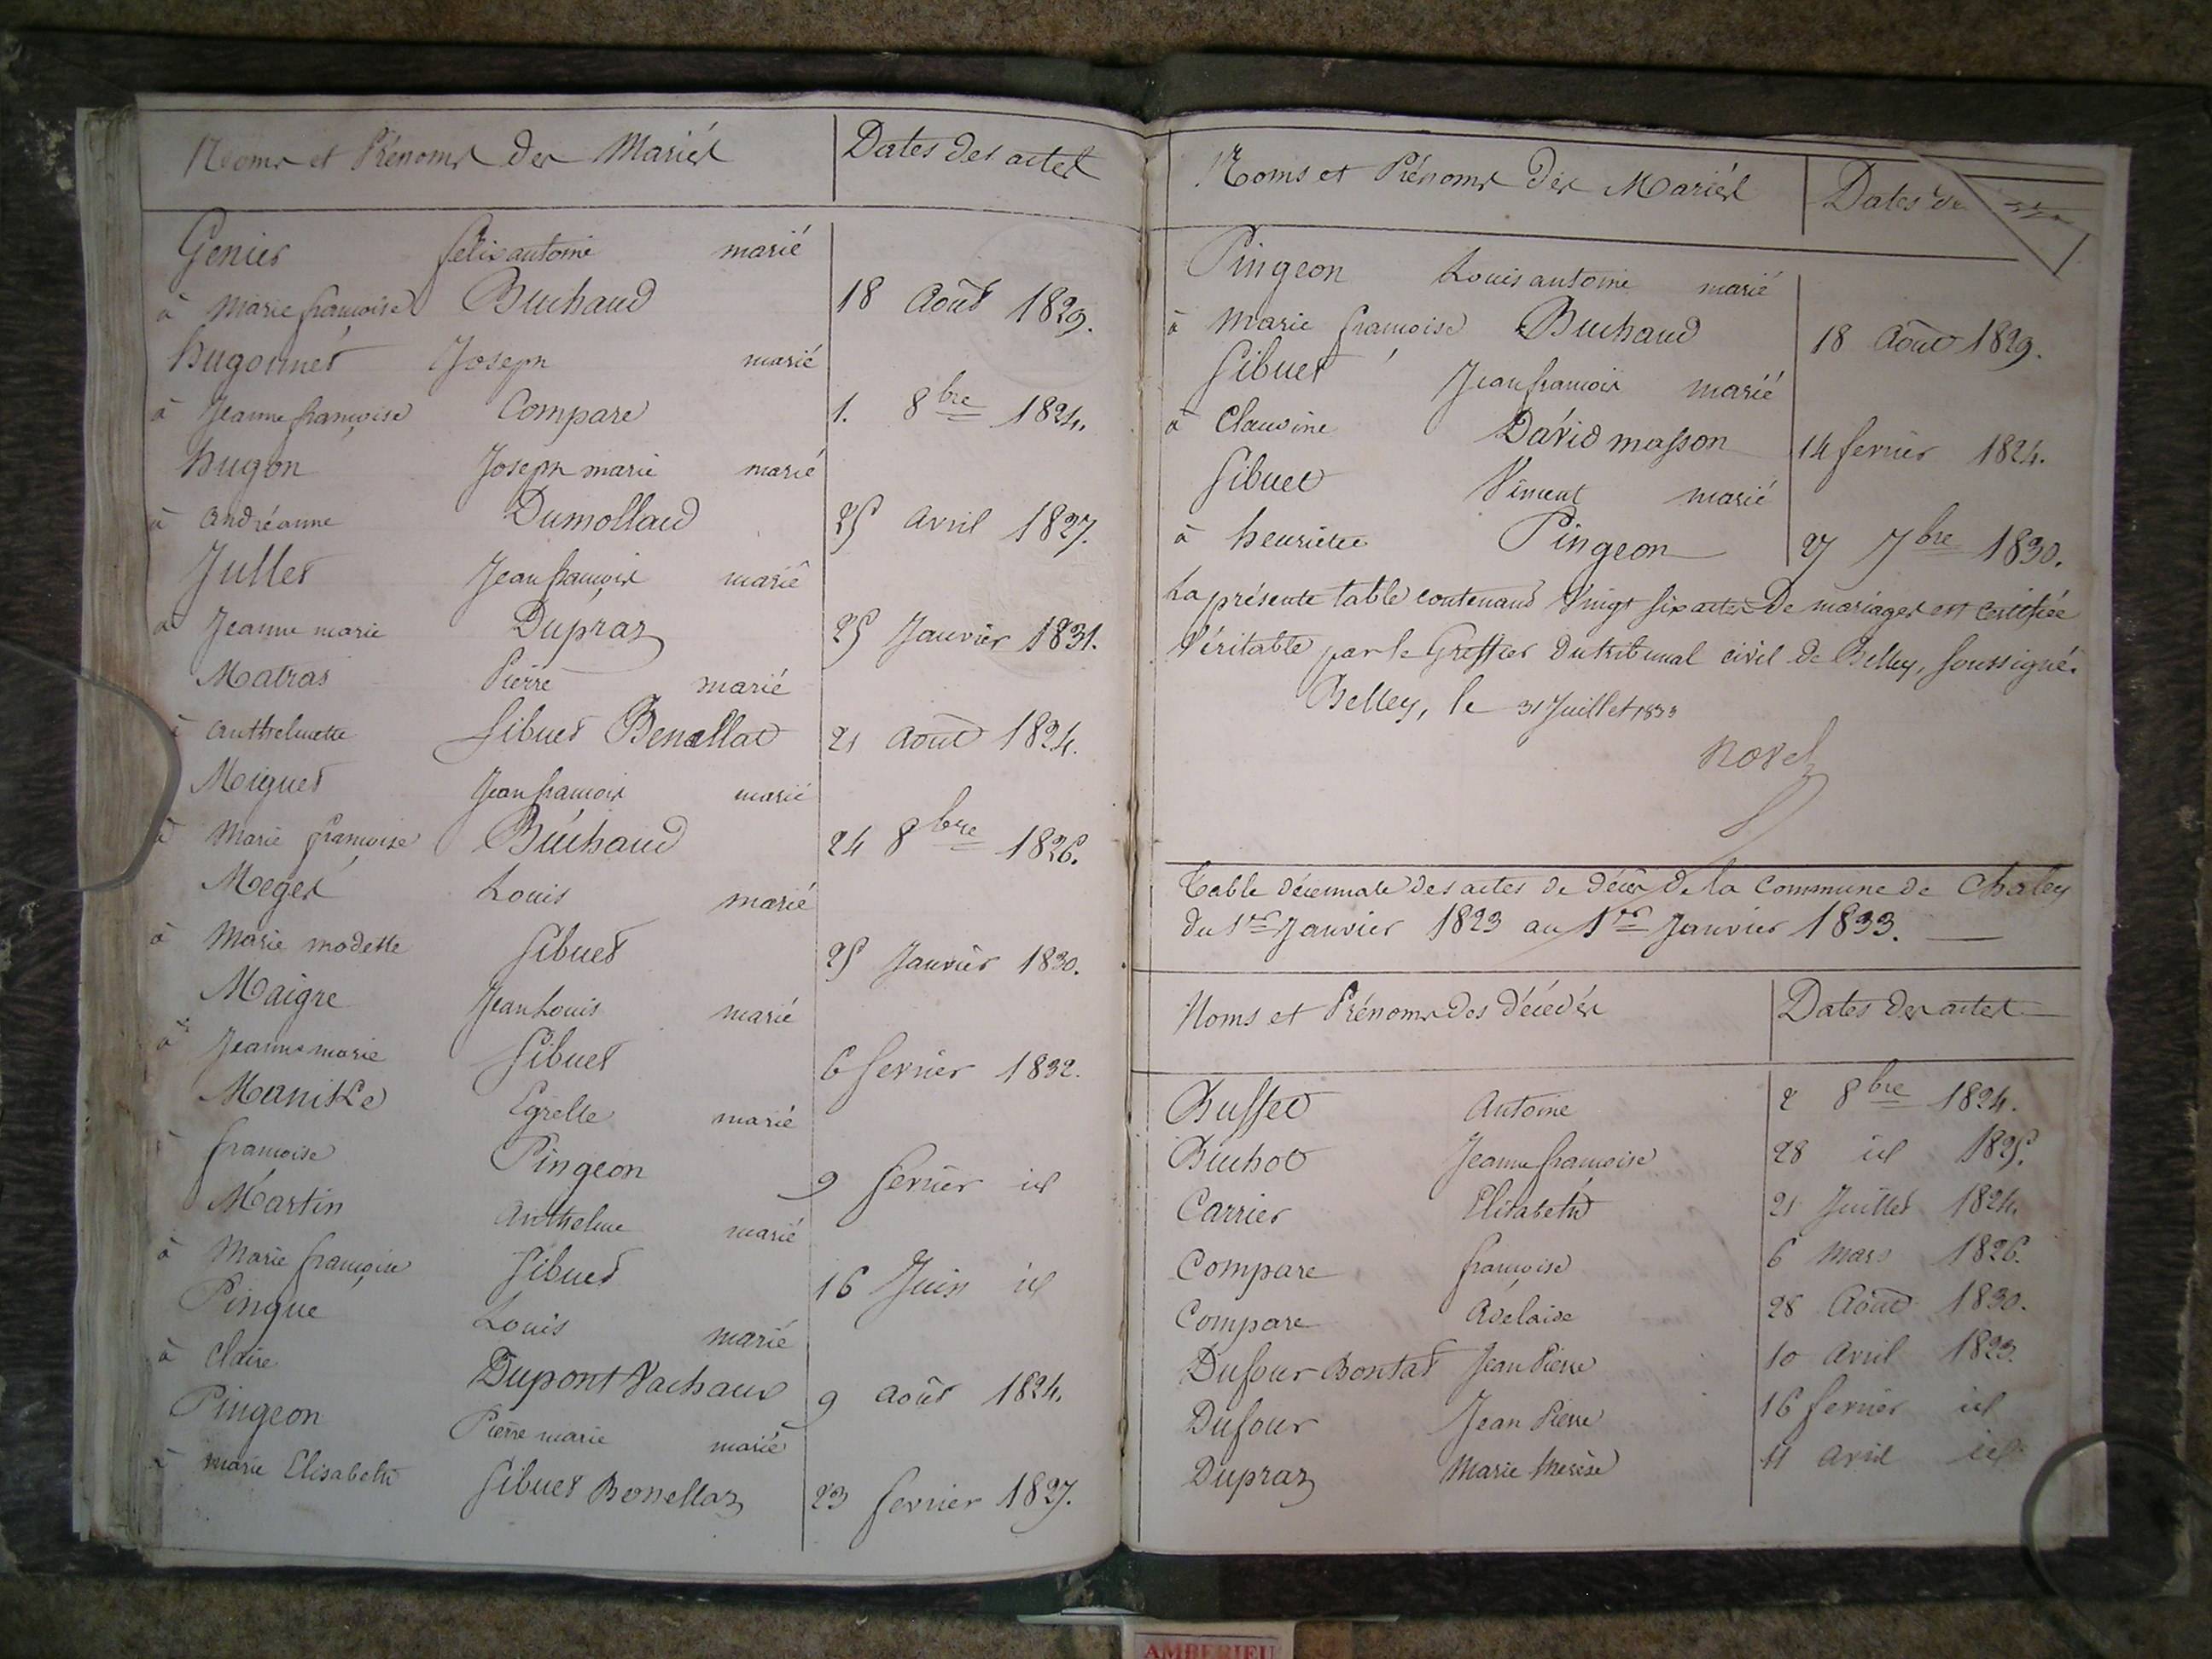 Noms et Prénoms des Mariés Dates des actes
Genier felix antoine marié
à Marie françoise Buchaud 18 Août 1829.
hugonnet Joseph marié
à Jeanne françoise Compare 1. 8bre 1824.
hugon Joseph marie marié
à andréanne Dumollard 25 avril 1827.
Jullet Jean françois marié
à Jeanne marie Dupraz 25 Janvier 1831.
Matras Pierre marié
à anthelmette Sibuet Benallat 21 Août 1824.
Miguet Jean françois marié
à Marie françoise Buchaud 24 8bre 1826.
Meges Louis marié
à Marie modeste Sibuet 25 Janvier 1830.
Maigre Jean Louis marié
à Jeanne marie Sibuet 6 fevrier 1832.
Egrelle marié
à françoise Pingeon 9 fevrier id
Martin Anthelme marié
à Marie françoise Sibuet 16 Juin id
Pingue Louis marié
à Claire Dupont Vachaud 9 août 1824.
Pingeon Pierre marie marié
à marie Elisabeth Sibuet Bonellaz 23 fevrier 1827.
Noms et Prénoms des Mariés Dates de
Pingeon Louis antoine marié
à Marie françoise Buchaud 18 Août 1829.
Sibuet Jean françois marié
à Claudine David masson 14 fevrier 1824.
Sibuet Vincent marié
à henriette Pingeon 27 7bre 1830.
La présente table contenant Vingt six actes De mariages est certifiée
Véritable par le Greffier du tribunal civil de Belley, soussigné.
Belley, le 31 Juillet 1833
Table décennale des actes de décès de la Commune de Chaley
du 1er Janvier 1823 au 1er Janvier 1833.
Noms et Prénoms des décédés Dates des actes
Buffet Antoine 2 8bre 1824.
Buchot Jeanne françoise 28 id 1825.
Carrier Elisabeth 21 Juillet 1824.
Compare françoise 6 Mars 1826.
Compare Adelaide 28 Août 1830.
Dufour Bontat Jean Pierre 10 avril 1823.
Dufour Jean Pierre 16 fevrier id
Dupraz Marie therèse 11 avril id
AMBERIEU